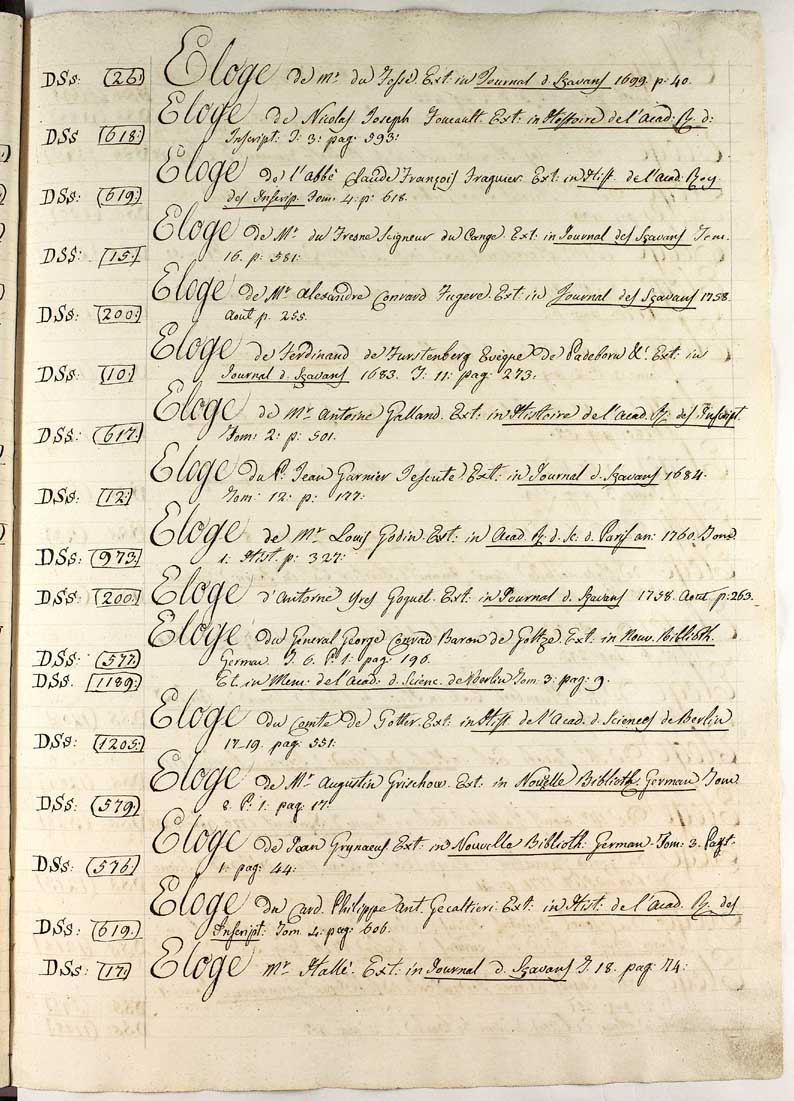 DSs: (26:) Eloge de mr. du Fossé Ext: in Journal d. Sçavans 1699. p: 40.
Eloge de Nicolas Joseph Foucault. Ext: in Histoire de l'Acad: R. d:
DSs (618:) Inscript: T: 3: pag: 593:
Eloge de l'abbé Claude François Fraguier. Ext: in Hist. de l'acad: Roy
DSs: (619:) des Inscrip. Tom. 4: p: 618.
Eloge de Mr. du Fresne Seigneur du Cange. Ext: in Journal des Sçavans Tom.
DSs: (15:) 16. p: 581:
Eloge de Mr. Alexandre Conrard Fugere. Ext: in Journal des Sçavans 1758.
DSs: (200:) Aout p. 255.
Eloge de Ferdinand de Furstenberg Evêque de Padeborn &c. Ext: in
DSs: (10:) Journal d. Sçavans 1683. T: 11: pag: 273:
Eloge de Mr. Antoine Galland. Ext: in Histoire de l'acad. R. des Inscript.
DSs: (617:) Tom: 2: p: 501.
Eloge du P. Jean Garnier Jesuite. Ext: in Journal d. Sçavans 1684.
DSs: (12:) Tom: 12: p: 177:
Eloge de Mr. Louis Godin. Ext: in Acad. R. d. Sc: d. Paris an: 1760. Tom:
DSs: (973:) 1: Hist. p: 327:
DSs: (200:) Eloge d'Antoine Yves Goguet. Ext: in Journal d. Sçavans 1758. Aout p: 263.
Eloge du General George Conrad Baron de Goltze. Ext: in Nouv. Biblioth.
DSs: (577:) German. T. 6. P. 1: pag: 196.
DSs. (1189:) Et in Mem: de l'acad: d. Scienc. de Berlin Tom. 3: pag: 9.
Eloge du Comte de Gotter. Ext: in Hist. de l'Acad. d. Sciences de Berlin
DSs: (1205:) pag: 551:
Eloge de Mr. Augustin Grischow. Ext: in Nouvelle Biblioth. German Tom
DSs: (579:) 8. P. 1: pag: 17:
Eloge de Jean Grynaeus Ext: in Nouvelle Biblioth: German. Tom: 3. Part.
DSs: (576:) 1. pag: 44:
Eloge du Card. Philippe Ant. Gecaltieri. Ext: in Hist: de l'acad. R. des
DSs: (619.) Inscript: Tom. 4: pag: 606.
DSs: (17:) Eloge mr. Hallé. Ext: in Journal d. Sçavans T. 18. pag: 74: